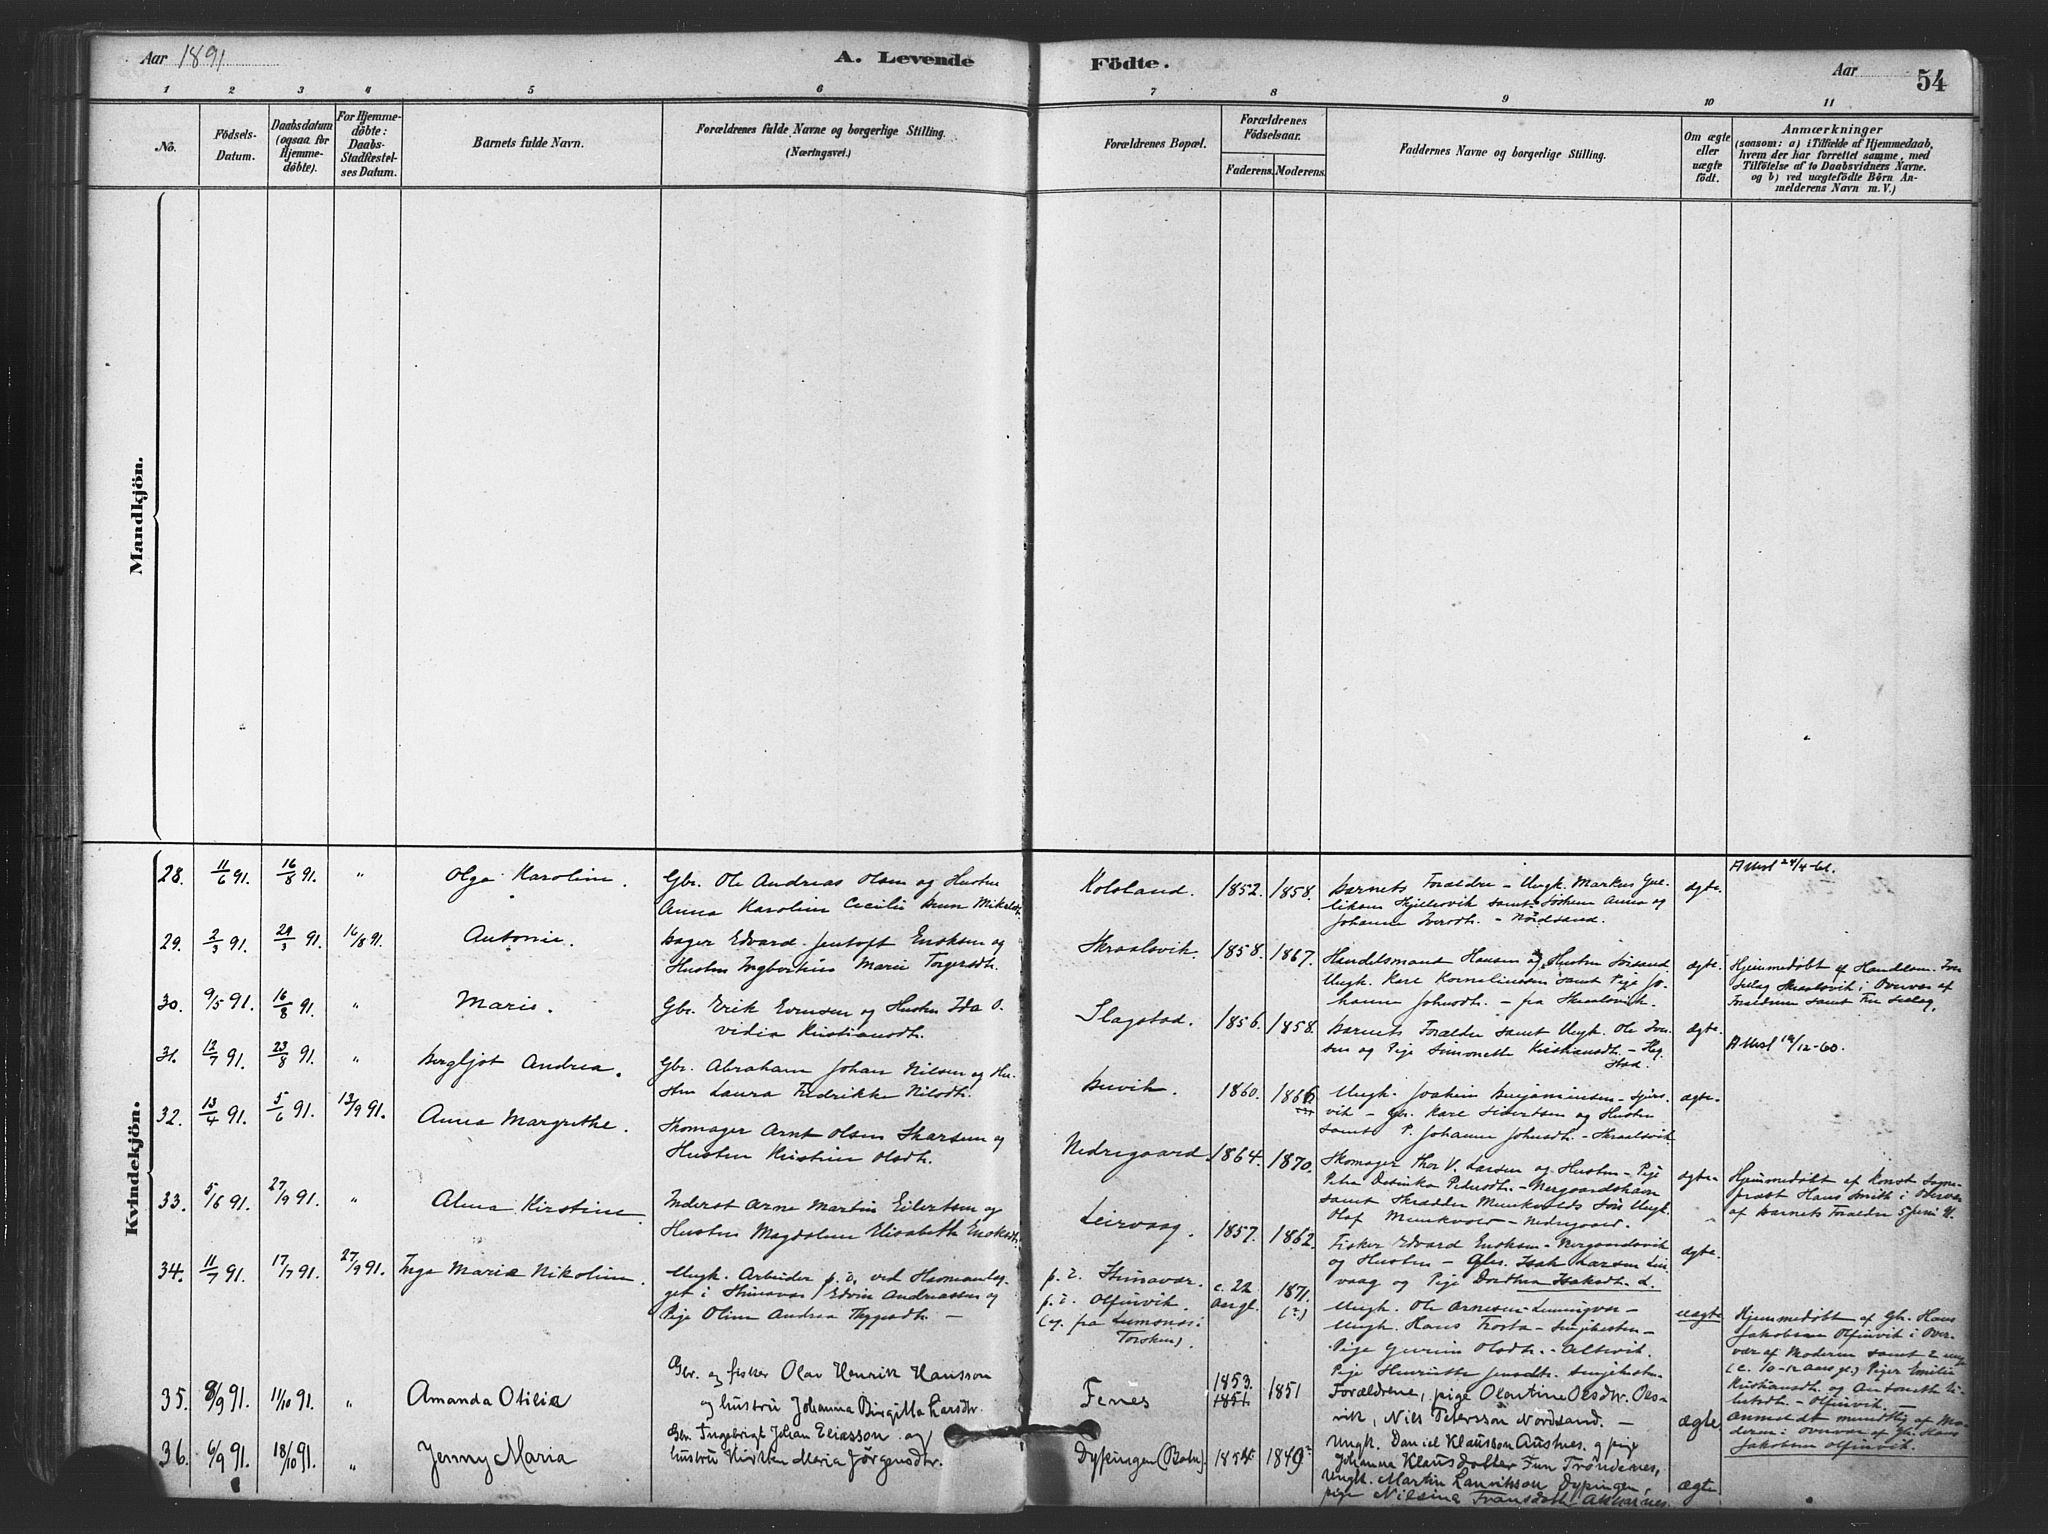 Aar 1891
A. Levende
Födte.
Aar
54
1 2 3 4 5 6 7 8 9 10 11
No.
Födsels-
Datum.
Daabsdatum
(ogsaa for
Hjemme-
döbte).
For Hjemme-
döbte:
Daabs-
Stadfæstel-
ses Datum.
Barnets fulde Navn.
Forældrenes fulde Navne og borgerlige Stilling.
(Næringsvei.)
Forældrenes Bopæl.
Forældrenes
Födselsaar.
Faderens. Moderens.
Faddernes Navne og borgerlige Stilling.
Om ægte
eller
uægte
födt.
Anmærkninger
(saasom: a) i Tilfælde af Hjemmedaab,
hvem der har forrettet samme, med
Tilföielse af to Daabsvidners Navne.
og b) ved uægtefödte Börn An-
melderens Navn m. V.)
Mandkjön.
Kvindekjön.
28. 11/6 91. 16/8 91. " Olga Karoline.
Gbr. Ole Andreas Olsen og Hustru
Anna Karoline Cecilie Mikelsdt.
Kolsland. 1852. 1858.
Barnets Forældre – Ungk. Markus
samt Anna og
Johanna – Nordsand.
ægte.
Attest 24/4-61.
29. 2/3 91. 29/3 91. 16/8 91. Antonie.
Bager Edvard Jentoft Eriksen og
Hustru Marie Torgersdt.
Skraalsvik. 1858. 1867.
Handelsmand Hansen og Hustru
Ungk. Karl Korneliussen samt Pige Jo-
hanna Johnsdt. – fra Skraalsvik.
ægte.
Hjemmedøbt af Handlsm.
Skraalsvik i Overvær af
Forældrene samt Fru
30. 9/5 91. 16/8 91. " Marie.
Gbr. Erik Evensen og Hustru Ida O-
vidia Kristiansdt.
Slagstad. 1856. 1858.
Barnets Forældre samt Ungk. Ole
og Pige Simonette Kristiansdt.
ægte.
Attest 19/12-60.
31. 12/7 91. 23/8 91. " Bergljot Andrea.
Gbr. Abraham Johan Nilsen og Hu-
stru Laura Fredrikke Nilsdt.
Buvik. 1860. 1866
Ungk. Joakim Benjaminsen –
vik – Gbr. Karl Sivertsen og Hustru
samt P. Johanna Johnsdt. – Skraalsvik
ægte.
32. 13/4 91. 5/6 91. 13/9 91. Anna Margrethe.
Skomager Arnt Olsen Skarsem og
Hustru Kristine Olsdt.
Nedregaard. 1864. 1870.
Skomager Thor V. Larsen og Hustru – Pige
Petra Pedersdt. –
samt Skrædder Munkvolds Søn Ungk.
Olaf Munkvold – Nedregaard.
ægte.
Hjemmedøbt af Konst. Sogne-
præst Hans Smith i Overvær
af Barnets Forældre 5 Juni 91.
33. 5/6 91. 27/9 91. " Alma Kirstine.
Inderst Arne Martin Eilertsen og
Hustru Magdalene Elisabeth Eriksdt.
Leirvaag. 1857. 1862.
Fisker Edvard Eriksen –
og Hustru – Gbr. Isak Larsen Leir-
vaag og Pige Dorthea Isaksdt. L.
ægte.
34. 11/7 91. 17/7 91. 27/9 91. Inga Maria Nikoline.
Ungk. Arbeider p. t. ved
i Stunavær Edvin Andreassen og
Pige Oline Andrea –
p. t. Stunavær.
p. t. Olfinvik.
Torsken).
c. 22 angl. 1871. (?)
Ungk. Ole Arnesen –
Ungk. Hans –
Pige Olsdt. – Altevik.
Pige Henriette
uægte
Hjemmedøbt af Gbr. Hans
Jakobsen Olfinvik i Over-
vær af Moderen samt 2
(c. 10-12 aars gl.) Piger Emilie
Kristiansdt. og Antonette
Olfinvik. –
Anmeldt mundtlig af Mo-
deren i Overvær af Gbr. Hans
Jakobsen Olfinvik.
35. 8/9 91. 11/10 91. " Amanda Otilie
Gbr. og fisker Olav Henrik Hansson
og hustru Johanna Birgitta Larsdtr.
Fenes 1853. 1851 1851
Forældrene, pige Olantine Olsdtr. Ols-
vik, Nils Petersson Nordsand. –
ægte
36. 6/9 91. 18/10 91. " Jenny Maria
Gbr. Ingebrigt Johan Eliasson og
hustru Kirsten Maria Jørgensdtr.
Dypingen (Botn). 1854 1849?
Ungk. Daniel Klausson Austnes, og pige
Johanna Klausdatter Trondenes,
Ungk. Martin Dypingen,
pige Nilsina Fransdatt.
ægte